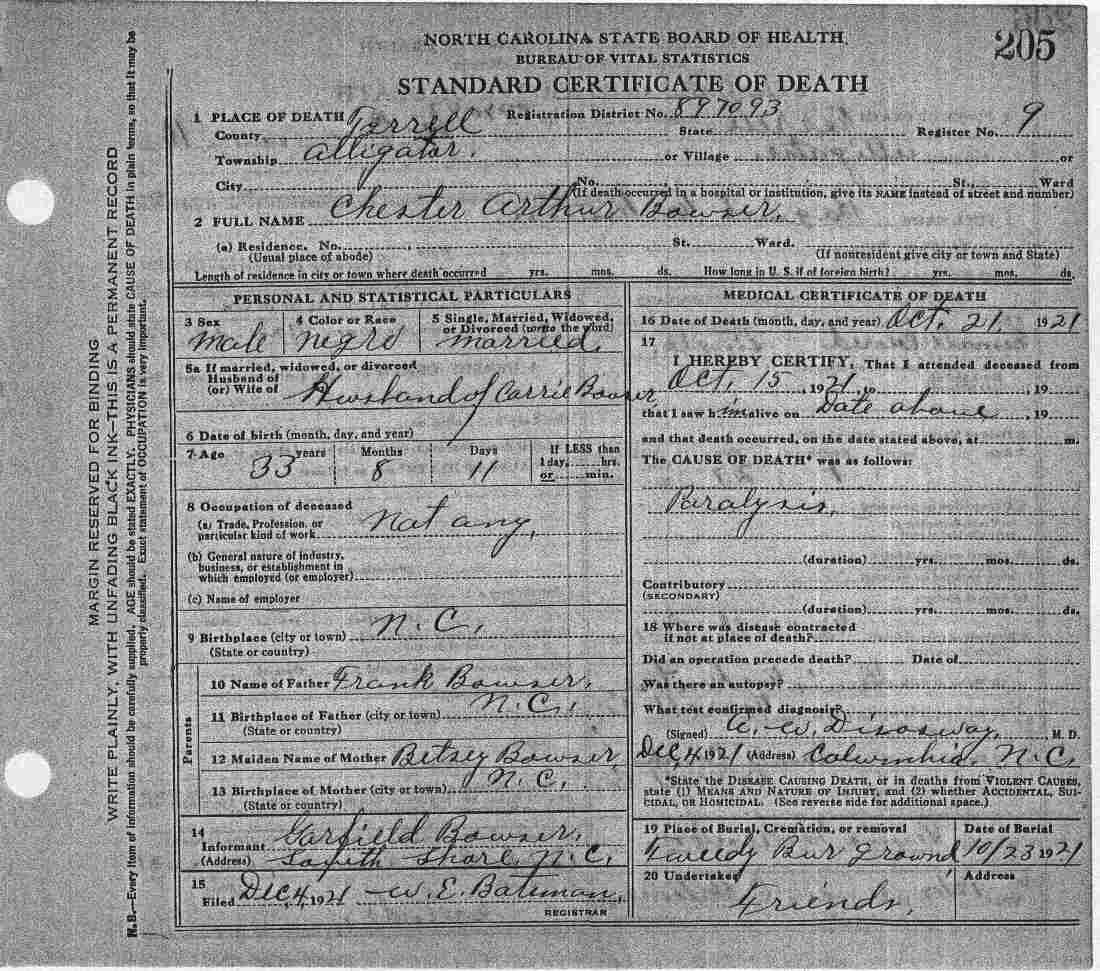 205
NORTH CAROLINA STATE BOARD OF HEALTH
BUREAU OF VITAL STATISTICS
STANDARD CERTIFICATE OF DEATH
1 PLACE OF DEATH Registration District No. 897093
County Tyrrell State Register No. 9
Township Alligator. or Village or
City No. St., Ward
(If death occurred in a hospital or institution, give its NAME instead of street and number)
2 FULL NAME Chester Arthur Bowser.
(a) Residence. No. St. Ward.
(Usual place of abode) (If nonresident give city or town and State)
Length of residence in city or town where death occurred yrs. mos. ds. How long in U. S. if of foreign birth? yrs. mos. ds.
PERSONAL AND STATISTICAL PARTICULARS
3 Sex 4 Color or Race 5 Single, Married, Widowed,
or Divorced (write the word)
Male negro married.
5a If married, widowed, or divorced
Husband of
(or) Wife of Husband of Carrie Bowser
6 Date of birth (month, day, and year)
7 Age years Months Days If LESS than
33 8 11 1 day, hrs.
or min.
8 Occupation of deceased
(a) Trade, Profession, or
particular kind of work Not any,
(b) General nature of industry,
business, or establishment in
which employed (or employer)
(c) Name of employer
9 Birthplace (city or town) N. C.
(State or country)
Parents
10 Name of Father Frank Bowser,
11 Birthplace of Father (city or town) N. C.,
(State or country)
12 Maiden Name of Mother Betsey Bowser,
13 Birthplace of Mother (city or town) N. C.
(State or country)
14
Informant Garfield Bowser,
(Address) South Shore N. C.
15
Filed Dec, 4, 1921 W. E. Bateman,
REGISTRAR
MEDICAL CERTIFICATE OF DEATH
16 Date of Death (month, day, and year) Oct. 21, 1921
17
I HEREBY CERTIFY, That I attended deceased from
Oct. 15, 1921 to , 19
that I saw him alive on Date above, 19
and that death occurred, on the date stated above, at m.
The CAUSE OF DEATH* was as follows:
Paralysis,
(duration) yrs. mos. ds.
Contributory
(SECONDARY)
(duration) yrs. mos. ds.
18 Where was disease contracted
if not at place of death?
Did an operation precede death? Date of
Was there an autopsy?
What test confirmed diagnosis?
(Signed) A. W. Disosway, M. D.
Dec, 4 1921 (Address) Columbia, N. C.
*State the DISEASE CAUSING DEATH, or in deaths from VIOLENT CAUSES,
state (1) MEANS AND NATURE OF INJURY, and (2) whether ACCIDENTAL, SUI-
CIDAL, OR HOMICIDAL. (See reverse side for additional space.)
19 Place of Burial, Cremation, or removal Date of Burial
Tweedy Bur ground 10/23 1921
20 Undertaker Address
Friends,
MARGIN RESERVED FOR BINDING
WRITE PLAINLY, WITH UNFADING BLACK INK—THIS IS A PERMANENT RECORD
N. B.—Every item of information should be carefully supplied. AGE should be stated EXACTLY. PHYSICIANS should state CAUSE OF DEATH in plain terms, so that it may be
properly classified. Exact statement of OCCUPATION is very important.